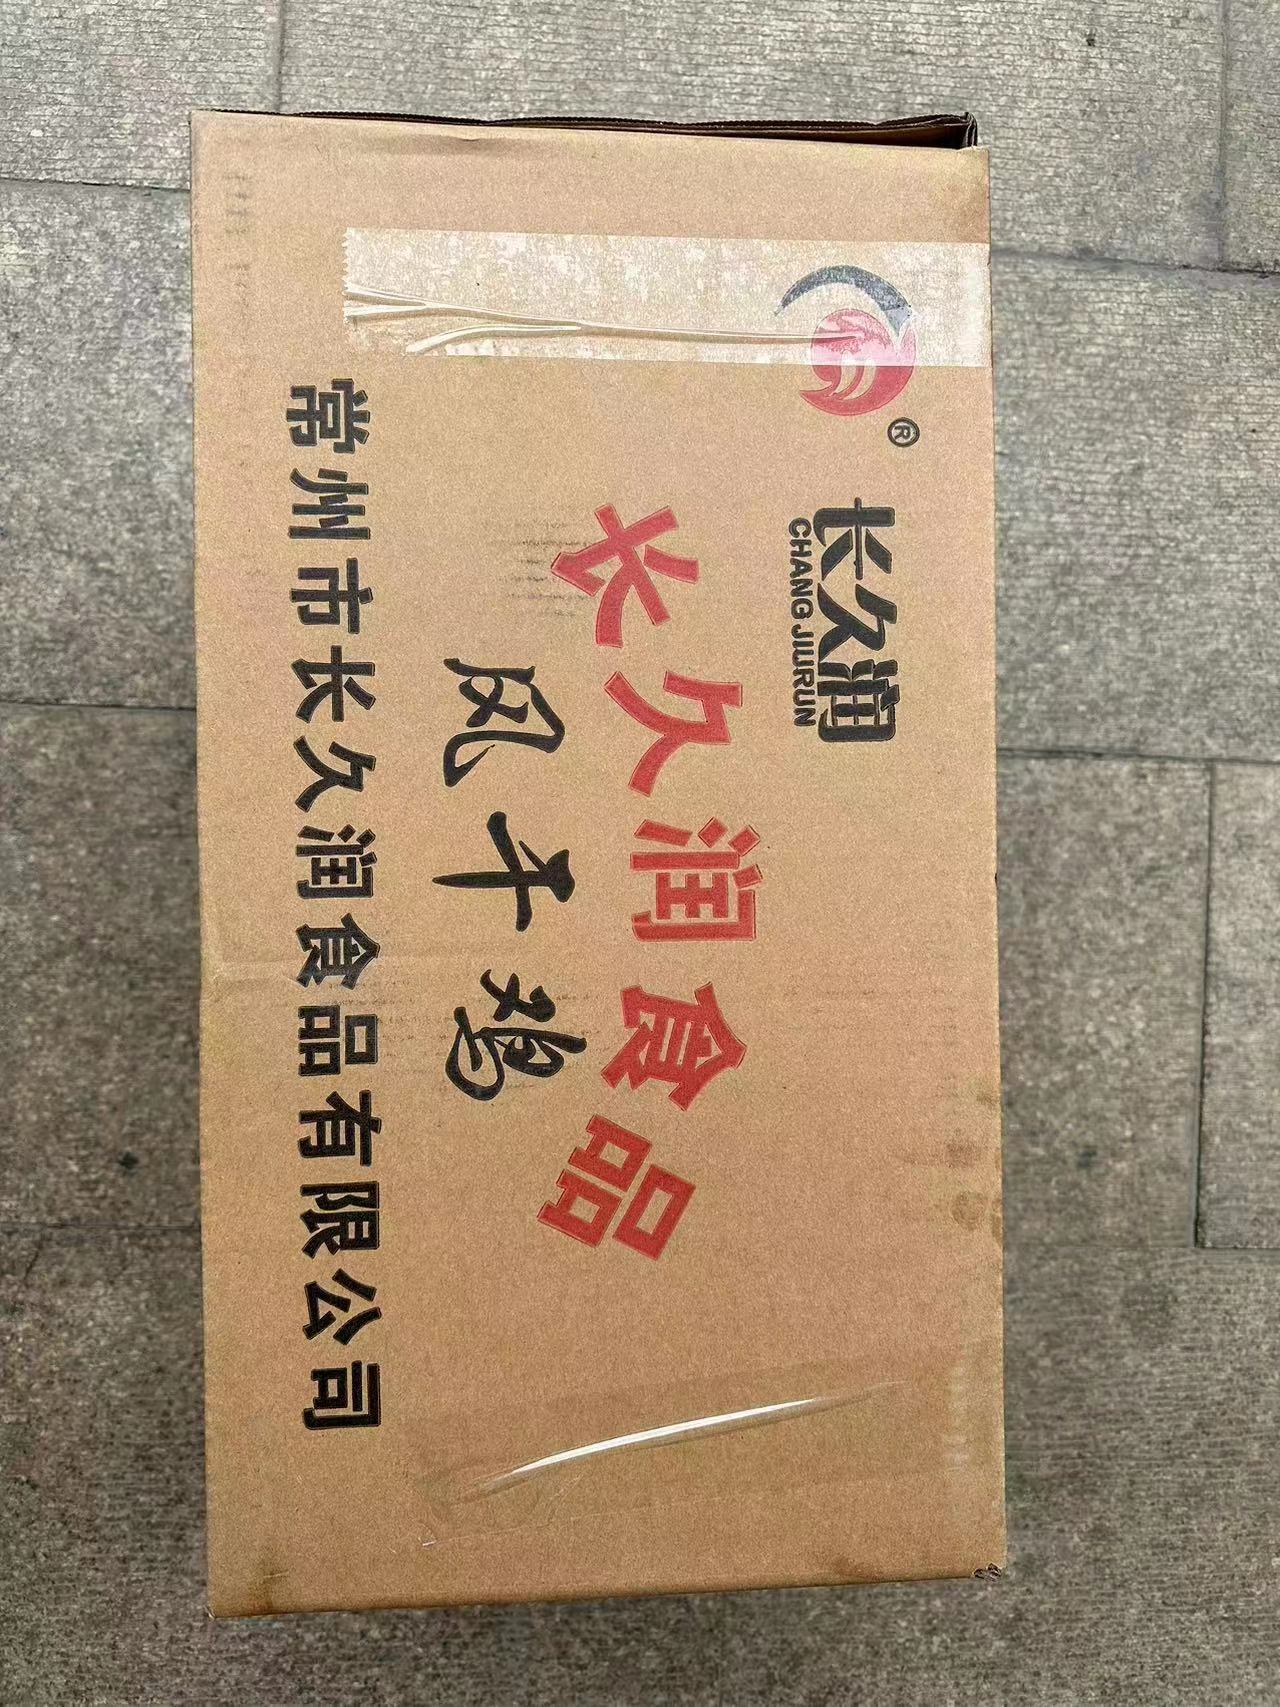 ®
长久润
CHANG JIURUN
长久润食品
风干鸡
常州市长久润食品有限公司